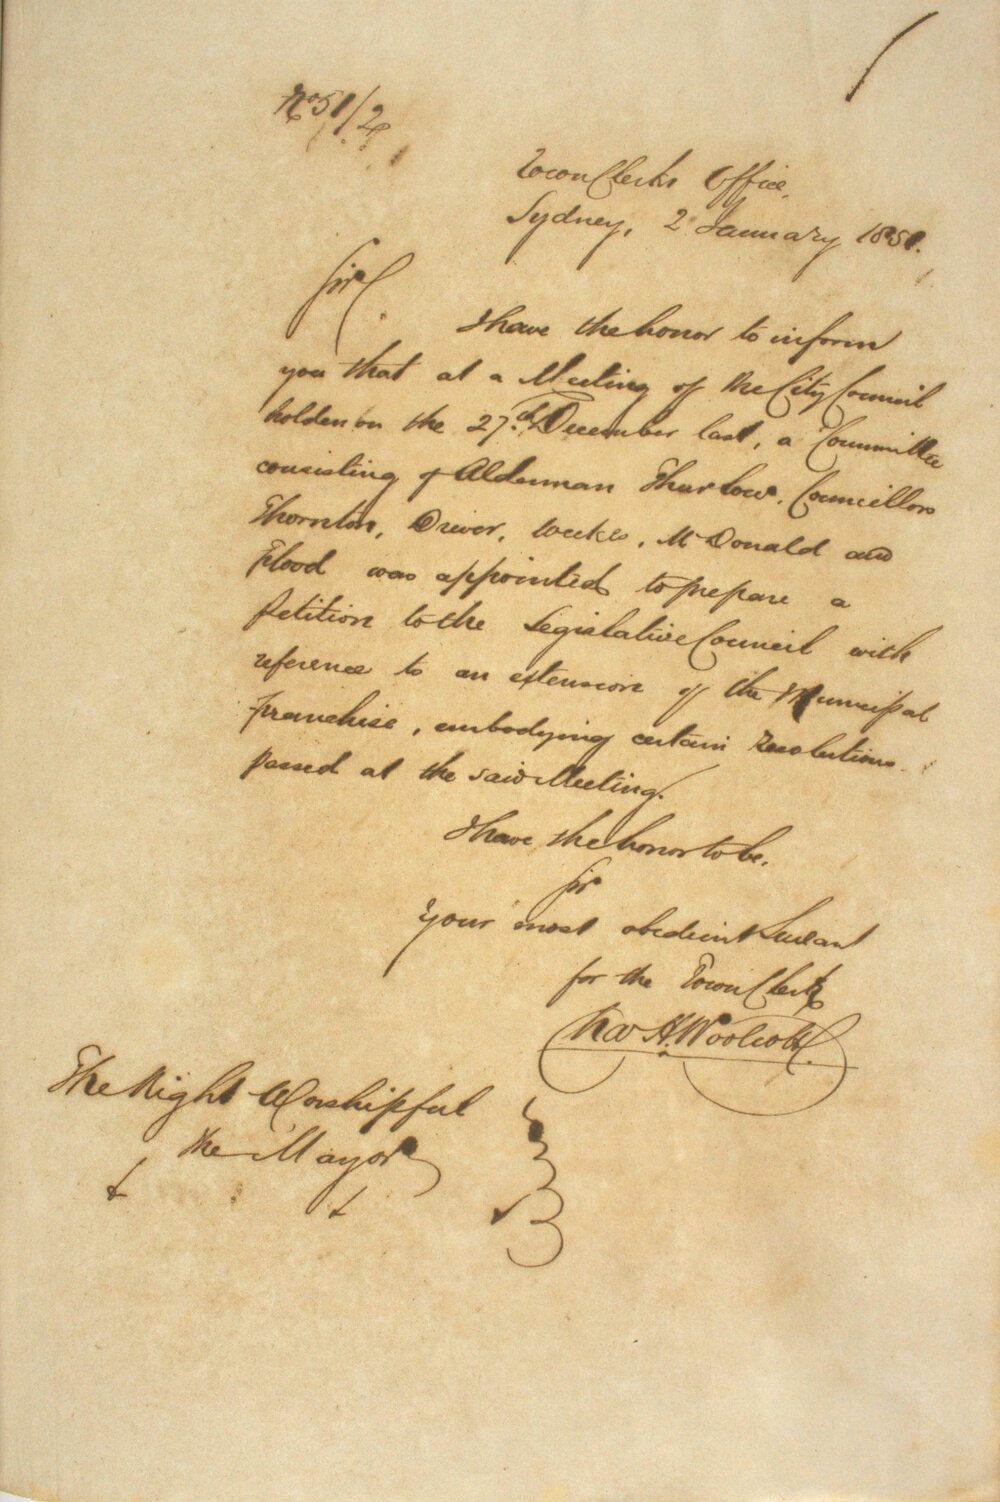 No 51/2
Town Clerks Office,
Sydney, 2 January 1851.
Sir,
I have the honor to inform
you that at a Meeting of the City Council
holden on the 27th December last, a Committee
consisting of Alderman Thurlow, Councillors
Thornton, Driver, Weekes, McDonald and
Flood was appointed to prepare a
Petition to the Legislative Council with
reference to an extension of the Municipal
Franchise, embodying certain Resolutions
passed at the said Meeting.
I have the honor to be,
Sir
Your most obedient Servant
for the Town Clerk
Chas H. Woolcott.
The Right Worshipful
the Mayor